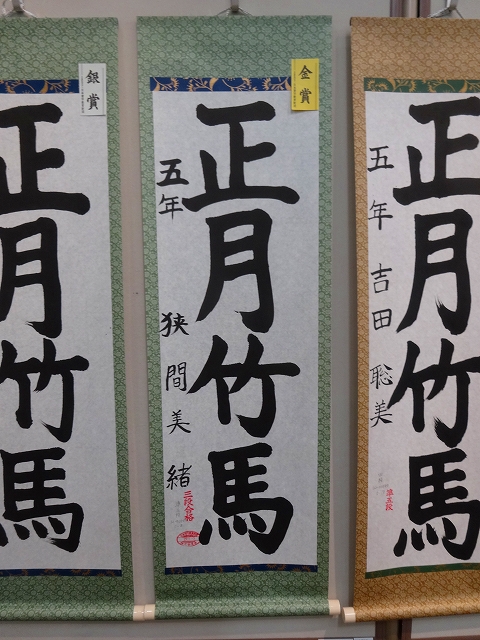 銀賞
正月竹馬
金賞
正月竹馬
五年 狭間美緒
三段合格
正月竹馬
五年 吉田聡美
準五段